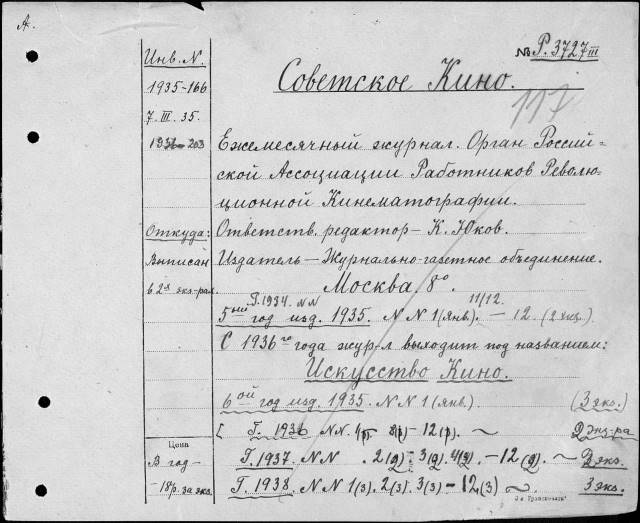 А.
№ Р. 3727 III
Инв. N.
Советское Кино.
1935-166
117
7. III. 35.
Ежемесячный журнал. Орган Россий=
ской Ассоциации Работников Револю-
ционной Кинематографии.
Откуда:
Ответств. редактор — К. Юков.
Выписан
Издатель — Журнально-газетное объединение.
в 2х экз-рах.
Москва. 8°.
Г. 1934. NN 11/12.
5ый год изд. 1935. NN 1 (янв.) — 12. (2 экз.)
С 1936го года жур-л выходит под названием:
Искусство Кино.
6ой год изд. 1935. NN 1 (янв.) (3 экз.)
[ Г. 1936 NN. — 12 2 экз-ра
Цена
В год —
Г. 1937. NN 2(2) 3(2). 4(2). — 12 (2) экз.
-18р. за экз.
Г. 1938. NN 1(3). 2(3). 3(3) — 12 (3) 3 экз.